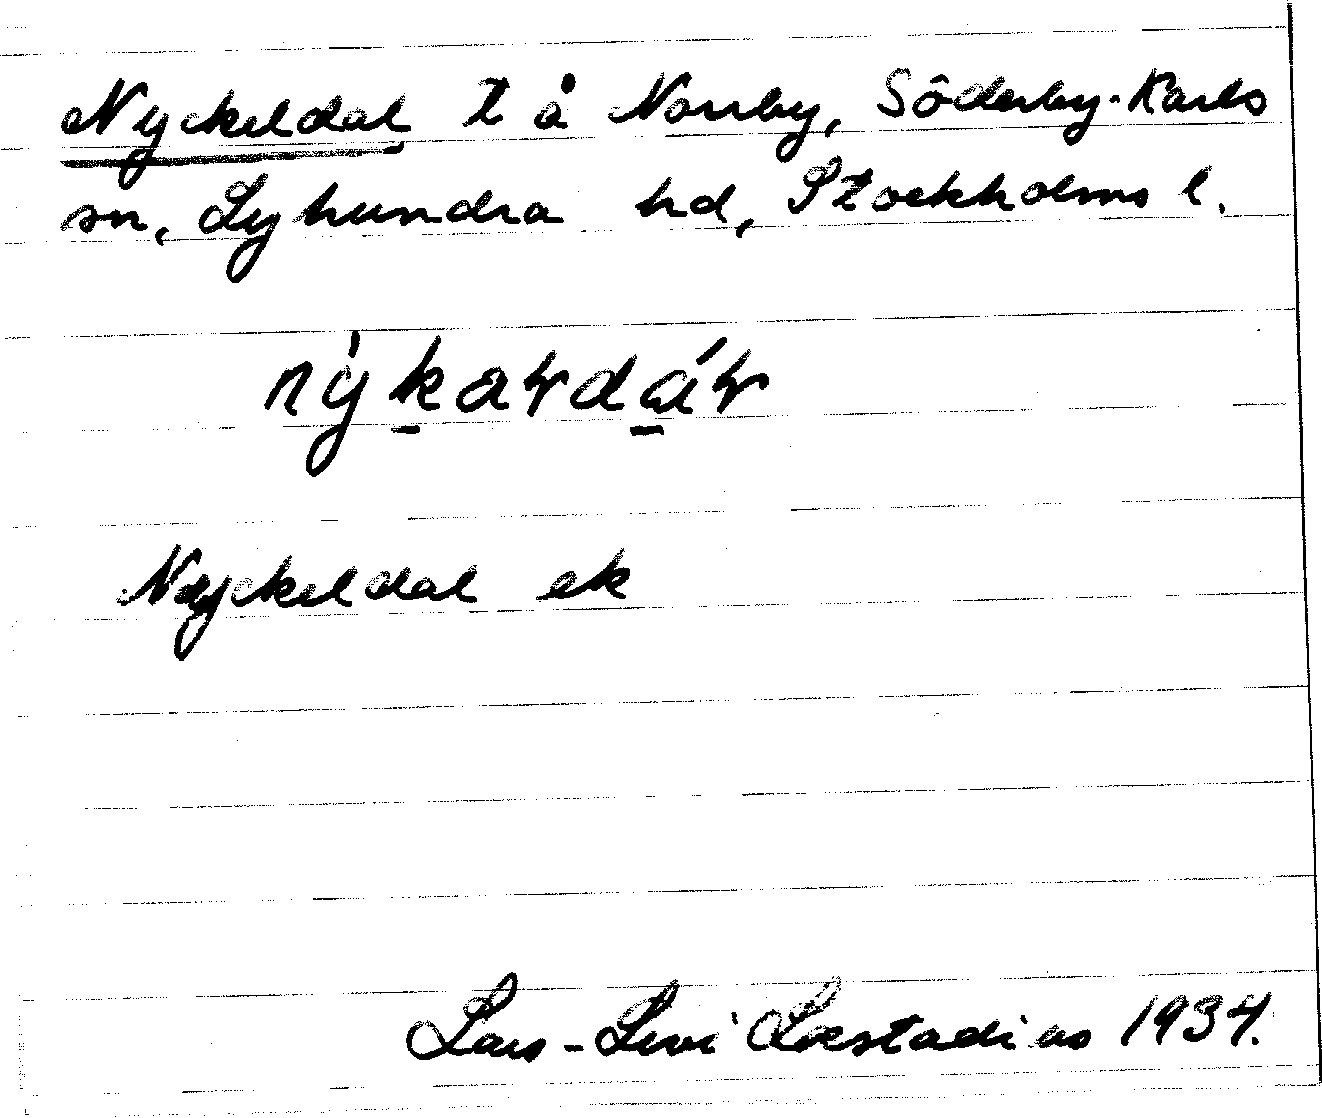 Nyckeldal t å Norrby, Söderby-Karls
sn, Lyhundra hd, Stockholms l.
Nyckeldal ek
Lars-Levi Læstadius 1934.